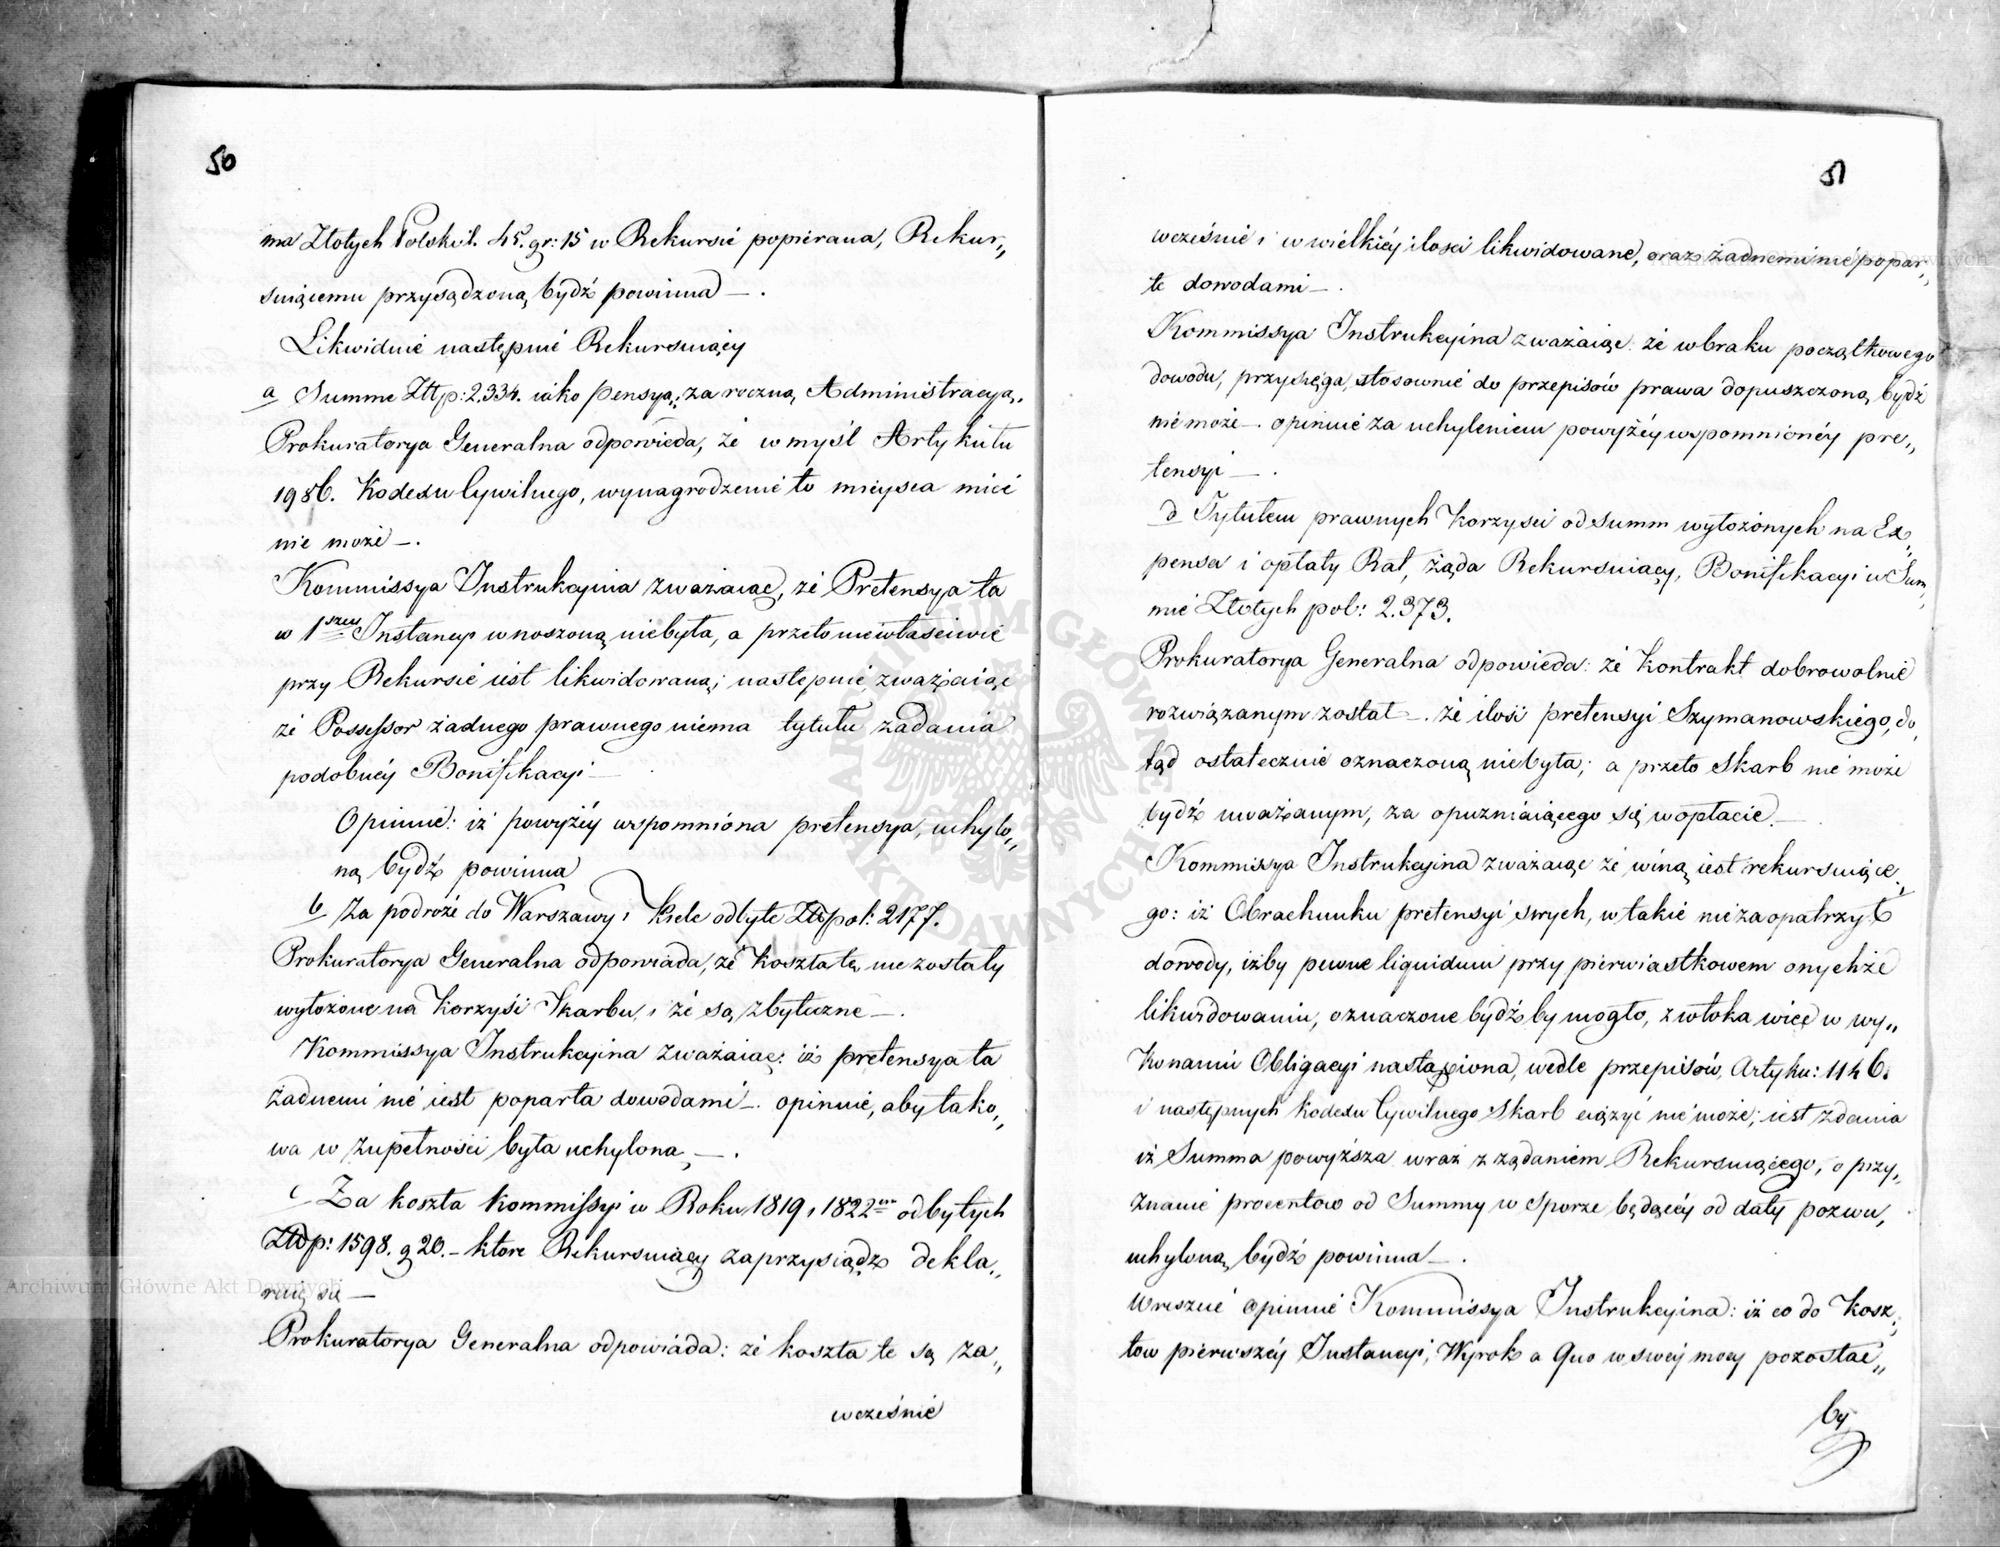 50
ma Złotych Polskich. 45. gr: 15 w Rekursie popierana, Rekur„
suiącemu przysądzoną bydź powinna —.
Likwiduie następnie Rekursuiący
a Summe Złtp: 2.334. iako Pensyą, za roczną Administracyą.
Prokuratorya Generalna odpowieda, że w myśl Artykułu
1986. Kodexu Cywilnego, wynagrodzenie to mieysca mieć
nie może —.
Kommissya Instrukcyina zważaiąc, że Pretensya ta
w 1szey Instancyi wnoszoną niebyła, a przeto niewłaściwie
przy Rekursie iest likwidowaną; następnie zważaiąc
że Possessor żadnego prawnego niema tytułu żądania
podobnéy Bonifikacyi —
Opiniie: iż powyżéy wspomniona pretensya, uchylo„
ną bydź powinna
b Za podróże do Warszawy i Kielc odbyte Złtpol: 2177.
Prokuratorya Generalna odpowiada, że koszta te nie zostały
wyłożone na korzyść Skarbu, i że są zbyteczne —.
Kommissya Instrukcyina zważaiąc: iż pretensya ta
żadnemi nie iest poparta dowodami —. opiniie, aby tako„
wa w zupełności była uchyloną —.
c Za koszta kommissyi w Roku 1819 i 1822m odbytych
Złtp: 1598. g 20. — ktore Rekursuiący zaprzysiądz dekla„
ruie się —
Prokuratorya Generalna odpowiada: że koszta te są za„
wcześnie
51
wcześnie i w wielkiéy ilości likwidowane, oraz żadnemi nie popar„
te dowodami —.
Kommissya Instrukcyina zważaiąc: że w braku początkowego
dowodu, przysięga, stosownie do przepisów prawa dopuszczoną bydź
nie może —. opiniie za uchyleniem powyżéy wspomnionéy pre„
tensyi —.
d Tytułem prawnych korzyści od summ wyłożonych na Ex„
pensa i opłaty Rat, żąda Rekursuiący, Bonifikacyi w Sum„
mie Złotych pol: 2.373.
Prokuratorya Generalna odpowieda: że kontrakt dobrowolnie
rozwiązanym został —. że ilość pretensyi Szymanowskiego, do„
tąd ostatecznie oznaczoną niebyła; a przeto Skarb nie może
bydź uważanym, za opuzniaiącego się w opłacie. —
Kommissya Instrukcyina zważaiąc że winą iest rekursuiące„
go: iż Obrachunku pretensyi swych, w takie nie zaopatrzył
dowody, iżby pewne liquidum przy pierwiastkowem onychże
likwidowaniu, oznaczone bydź by mogło, zwłoka więc w wy„
konaniu Obligacyi nastąpiona, wedle przepisów, Artyku: 1146.
i następnych kodexu Cywilnego Skarb ciążyć nie może; iest zdania
iż Summa powyższa wraz z żądaniem Rekursuiącego, o przy„
znanie procentow od Summy w Sporze będącéy od daty pozwu,
uchyloną bydź powinna —.
Wreszcie opiniie Kommissya Instrukcyina: iż co do kosz„
tow pierwszéy Instancyi, Wyrok a Quo w swéy mocy pozostać„
by
Archiwum Główne Akt Dawnych
ARCHIWUM GŁÓWNE AKT DAWNYCH